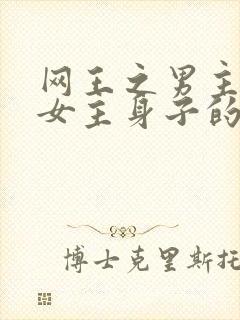 网王之男主
女主身子的
博士克里斯托